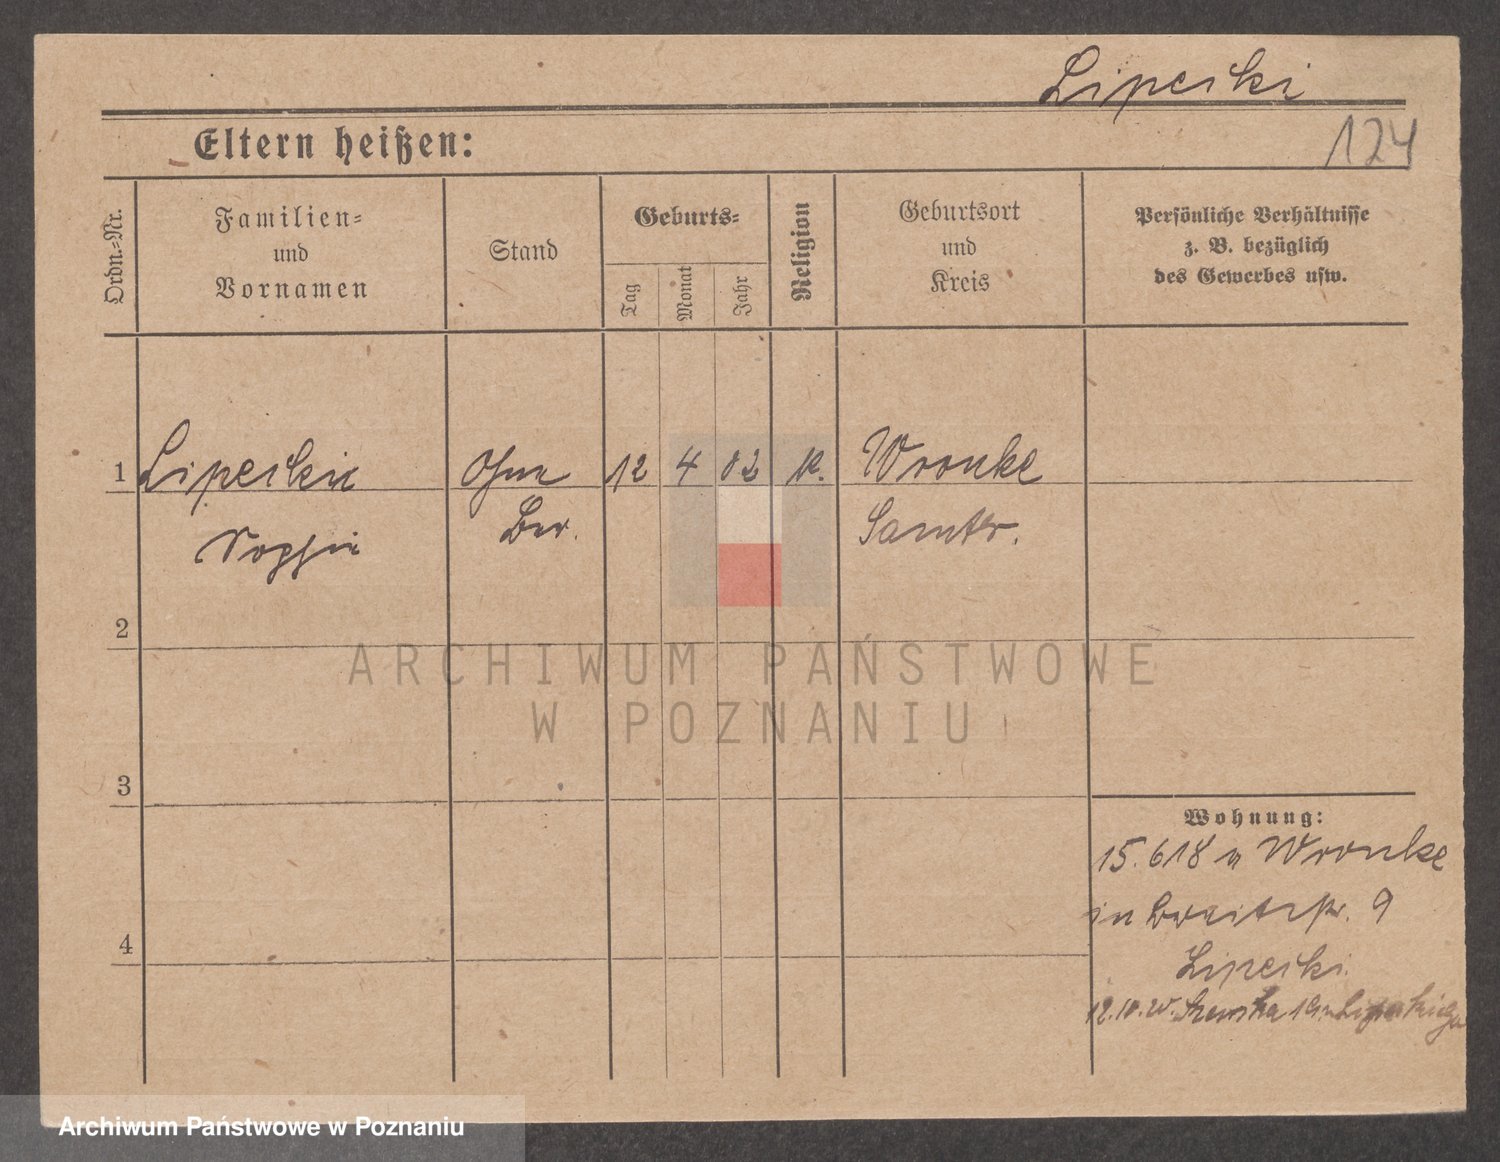 Lipecki
124
Eltern heißen:
Ordn.-Nr.
Familien-
und
Vornamen
Stand
Geburts-
Tag
Monat
Jahr
Religion
Geburtsort
und
Kreis
Persönliche Verhältnisse
z. B. bezüglich
des Gewerbes usw.
1
Ohne
12
4
02
K.
Wronke
Ber.
Samter.
Sophie
2
ARCHIWUM PAŃSTWOWE
W POZNANIU
3
Wohnung:
15.618 Wronke
in Breitestr. 9
Lipecki.
4
12.10.
Archiwum Państwowe w Poznaniu